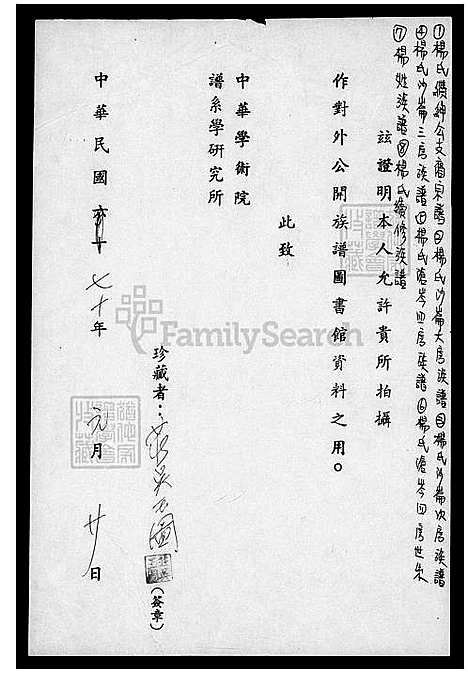 ①楊氏纘紳公支脈宗譜②楊氏沙崙大房族譜③楊氏沙崙次房族譜
④楊氏沙崙三房族譜⑤楊氏滄岑四房族譜⑥楊氏滄岑四房世系
⑦楊姓族譜⑧楊氏續修族譜
茲證明本人允許貴所拍攝
作對外公開族譜圖書館資料之用。
此致
中華學術院
譜系學研究所
珍藏者：
(簽章)
中華民國七十年元月廿日
FamilySearch